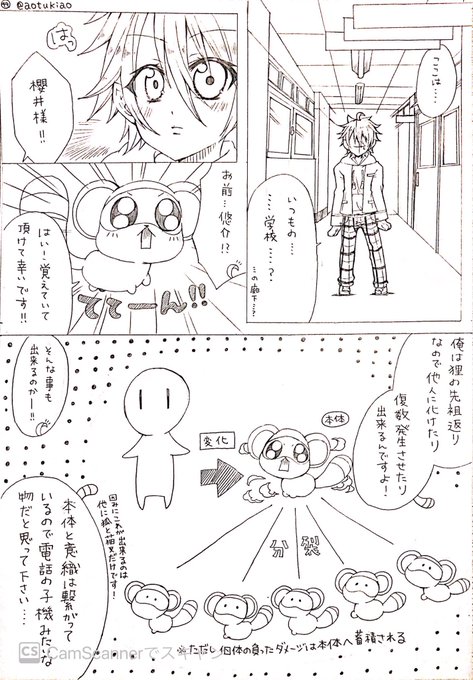 @aotukiao
ここは…
いつもの…
……学校
……?
この廊下…?
はっ
櫻井様!!
お前…悠介!?
はい!覚えていて
頂けて幸いです!!
ててーん!!
俺は狸の先祖返り
なので他人に化けたり
復数発生させたり
出来るんですよ!
そんな事も
出来るのかー!!
変化
本体
因みにこれが出来るのは
他に狐と猫又だけです!
分裂
本体と意織は繋がって
いるので電話の子機みたいな
物だと思って下さい…
※ただし個体の負ったダメージは本体へ蓄積される
CS CamScannerでスキャン